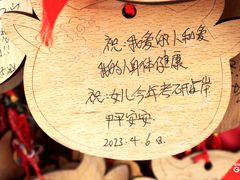 祝:我爱的人和爱
我的人身体健康
祝:女儿今年考研上岸
平平安安
2023.4.6日.